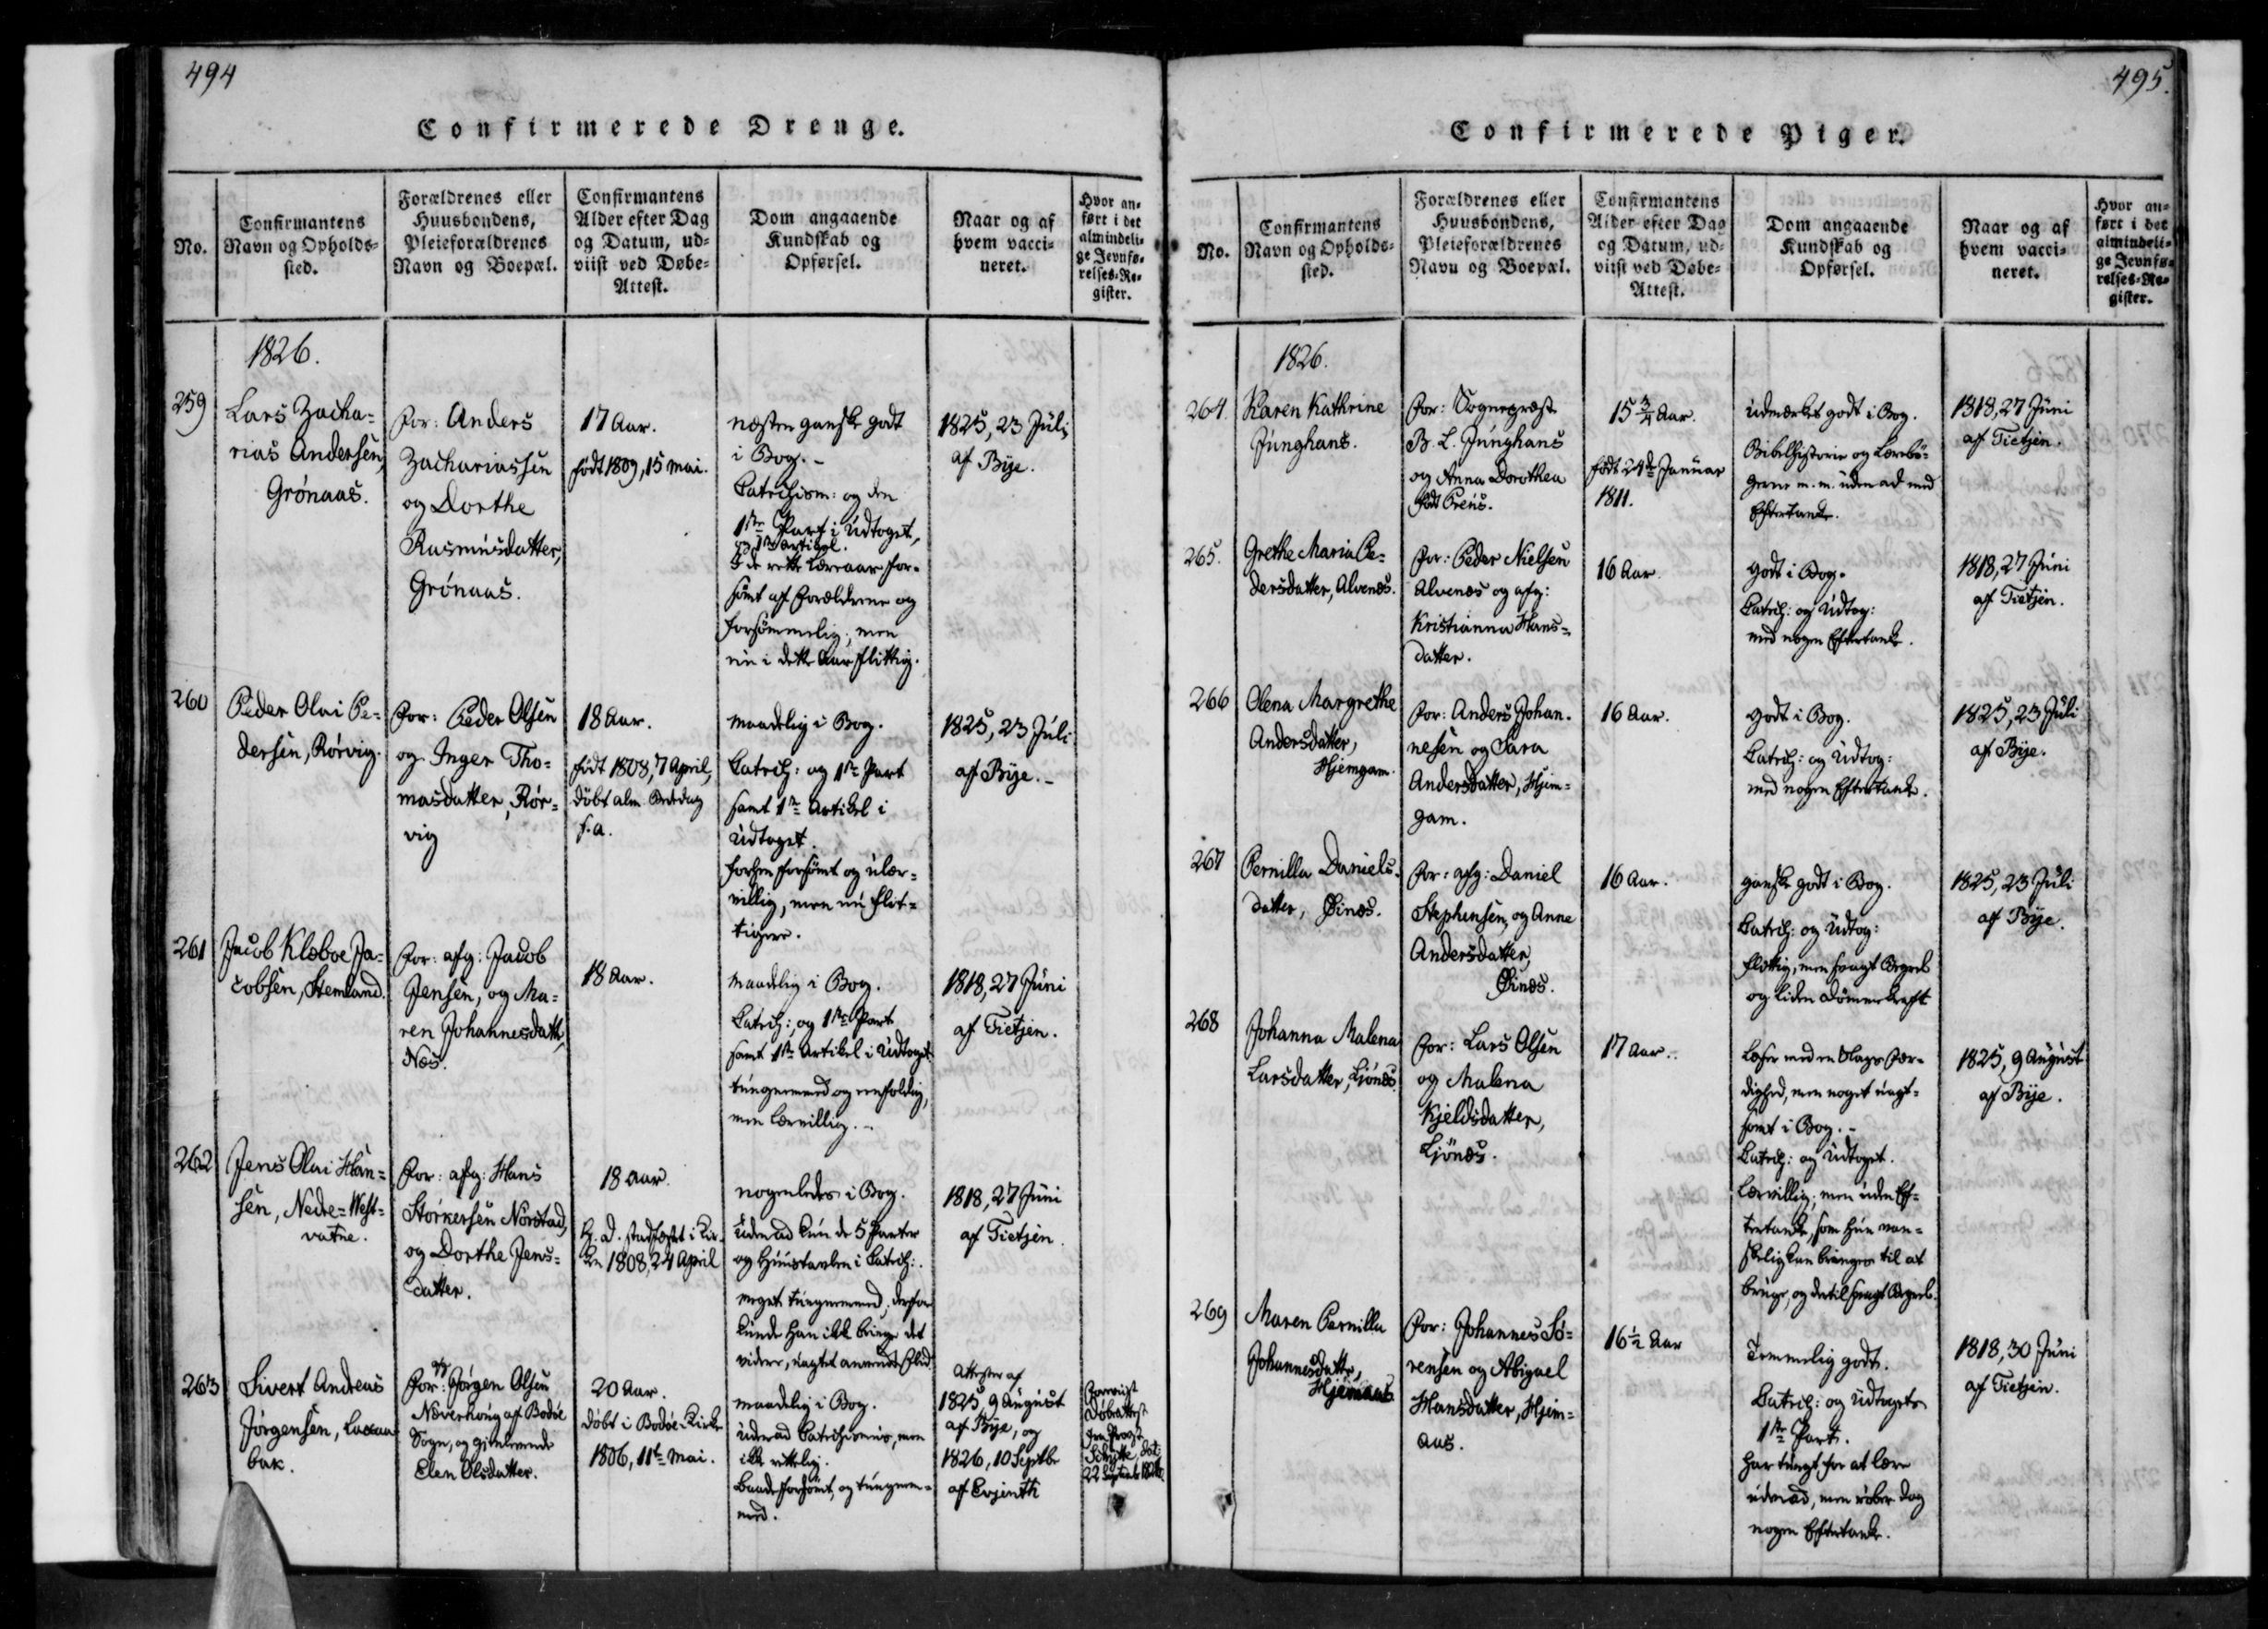 494
Confirmerede Drenge.
No.
Confirmantens
Navn og Opholds-
sted.
Forældrenes eller
Huusbondens,
Pleieforældrenes
Navn og Boepæl.
Confirmantens
Alder efter Dag
og Datum, ud-
viist ved Døbe-
Attest.
Dom angaaende
Kundskab og
Opførsel.
Naar og af
hvem vacci-
neret.
Hvor an-
ført i det
almindeli-
ge Jevnfø-
relses-Re-
gister.
1826.
259
Lars Zacha=
rias Andersen,
Grönaas.
For: Anders
Zachariassen
og Dorthe
Rasmusdatter,
Grönaas.
17 Aar.
født 1809, 15 Mai.
næsten ganske godt
i Bog. -
Catechism: og den
1ste Part i Udtoget,
og 1ste Artikel.
I de rette Læreaar for=
sömt af Forældrene og
forsömmelig; men
nu i dette Aar flittig.
1825, 23 Juli
af Bye.
260
Peder Olai Pe=
dersen, Rörvig.
For: Peder Olsen
og Inger Tho=
masdatter, Rör=
vig
18 Aar.
født 1808, 7 April,
döbt alm. Bededag
s.a.
maadelig i Bog.
Catech: og 1ste Part
samt 1ste Artikel i
Udtoget.
forhen forsömt og ulær=
villig, men nu flit=
tigere.
1825, 23 Juli
af Bye. -
261
Jacob Klæboe Ja=
cobsen, Stemland.
For: afg: Jacob
Jensen, og Ma=
ren Johannesdatt,
Næs.
18 Aar.
maadelig i Bog.
Catech:, og 1ste Part
samt 1ste Artikel i Udtoget
tungnemmed og eenfoldig,
men lærvillig. -
1818, 27 Juni
af Tietjen.
262
Jens Olai Han=
sen, Nedre=West=
vatne.
For: afg: Hans
Störkersen Nörstad,
og Dorthe Jens=
datter.
18 Aar.
Hj. D. stadfæstet i Kir=
ken 1808, 24 April
nogenledes i Bog.
Udenad kun de 5 Parter
og Huustavlen i Catech:.
meget tungnemmed, derfor
kunde han ikke bringe det
videre, uagtet anvendt Flid.
1818, 27 Juni
af Tietjen.
263
Sivert Andreas
Jörgensen,
bak.
For: afg: Jörgen Olsen
af Bodöe
Sogn, og gienlevende
Elen Olsdatter.
20 Aar.
döbt i Bodöe Kirke
1806, 11te Mai.
maadelig i Bog.
Udenad Catechismus, men
ikke rettelig.
Baade forsömt, og tungnem=
med.
Attester af
1825, 9 August
af Bye, og
1826, 10 Septbr
af
Foreviist
Döbeattest
fra Provst
dat:
22 Septemb 1826.
495.
Confirmerede Piger.
No.
Confirmantens
Navn og Opholds-
sted.
Forældrenes eller
Huusbondens,
Pleieforældrenes
Navn og Boepæl.
Confirmantens
Alder efter Dag
og Datum, ud-
viist ved Døbe-
Attest.
Dom angaaende
Kundskab og
Opførsel.
Naar og af
hvem vacci-
neret.
Hvor an-
ført i det
almindeli-
ge Jevnfø-
relses-Re-
gister.
1826.
264.
Karen Kathrine
Junghans.
For: Sognepræst
B. L. Junghans
og Anna Dorothea
født Prëus.
15 3/4 Aar.
født 24de Januar
1811.
udmærket godt i Bog.
Bibelhistorie og Lærebö=
gerne m. m. uden ad med
Eftertanke.
1818, 27 Juni
af Tietjen.
265.
Grethe Maria Pe=
dersdatter, Alvenæs.
For: Peder Nielsen
Alvenæs og afg:
Kristianna Hans=
datter.
16 Aar.
godt i Bog.
Catech: og Udtog:
med nogen Eftertanke.
1818, 27 Juni
af Tietjen.
266
Olena Margrethe
Andersdatter,
Hjemgam.
For: Anders Johan=
nesen og Sara
Andersdatter, Hjem=
gam.
16 Aar.
godt i Bog.
Catech: og Udtog:
med nogen Eftertanke.
1825, 23 Juli
af Bye.
267
Pernilla Daniels=
datter, Öinæs.
For: afg: Daniel
Stephensen, og Anne
Andersdatter,
Öinæs.
16 Aar.
ganske godt i Bog.
Catech: og Udtog:
flittig, men svagt Begreb
og liden Dömmekraft
1825, 23 Juli
af Bye.
268
Johanna Malena
Larsdatter, Ljönæs
For: Lars Olsen
og Malena
Kjeldsdatter,
Ljönæs.
17 Aar.
læser med en Slags Fær=
dighed, men noget uagt=
somt i Bog. -
Catech: og Udtoget.
Lærvillig; men uden Ef=
tertanke, som hun van=
skelig kan bringes til at
bruge, og dertil svagt Begreb.
1825, 9 August
af Bye.
269
Maren Pernilla
Johannesdatter,
Hjemaas
For: Johannes Sö=
rensen og Abigael
Hansdatter, Hjem=
aas.
16 1/2 Aar
Temmelig godt.
Catech: og Udtogets
1ste Part.
Har tungt for at lære
udenad, men röber dog
nogen Eftertanke.
1818, 30 Juni
af Tietjen.